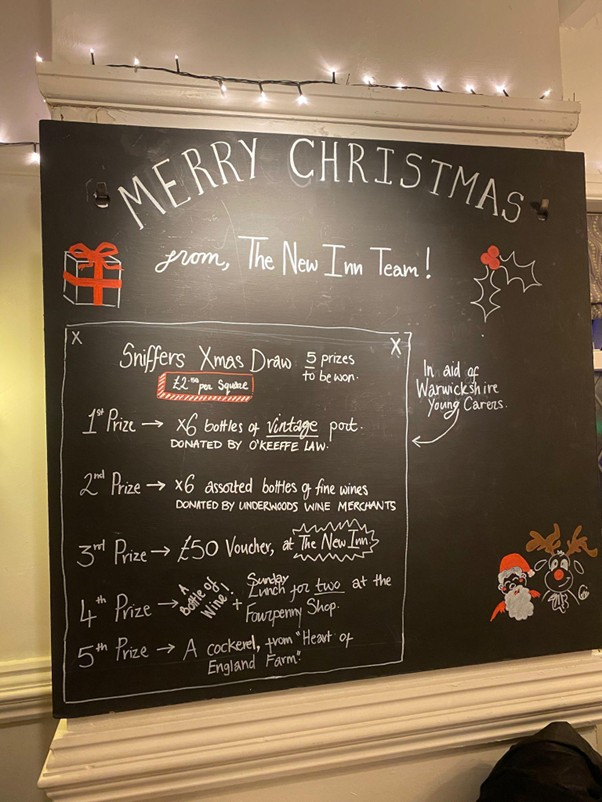 MERRY CHRISTMAS
from, The New Inn Team!
X X
Sniffers Xmas Draw 5 prizes
to be won.
£2.50 per Square
1st Prize → x6 bottles of vintage port.
DONATED BY O'KEEFFE LAW.
2nd Prize → x6 assorted bottles of fine wines
DONATED BY UNDERWOODS WINE MERCHANTS
3rd Prize → £50 Voucher, at The New Inn
4th Prize → A Bottle of Wine! + Sunday Lunch for two at the
Fourpenny Shop.
5th Prize → A cockerel, from "Heart of
England Farm".
In aid of
Warwickshire
Young Carers.